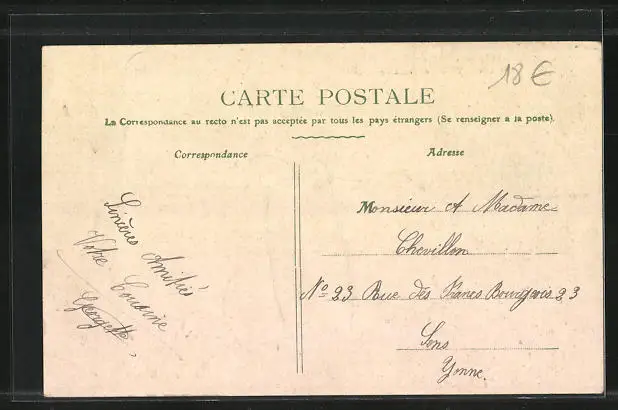 18€
CARTE POSTALE
La Correspondance au recto n'est pas acceptée par tous les pays étrangers (Se renseigner a la poste).
Correspondance
Adresse
Sincères Amitiés
Votre Cousine
Georgette
Monsieur et Madame
Chevillon
No 23 Rue des Francs Bourgeois 23
Sens
Yonne.